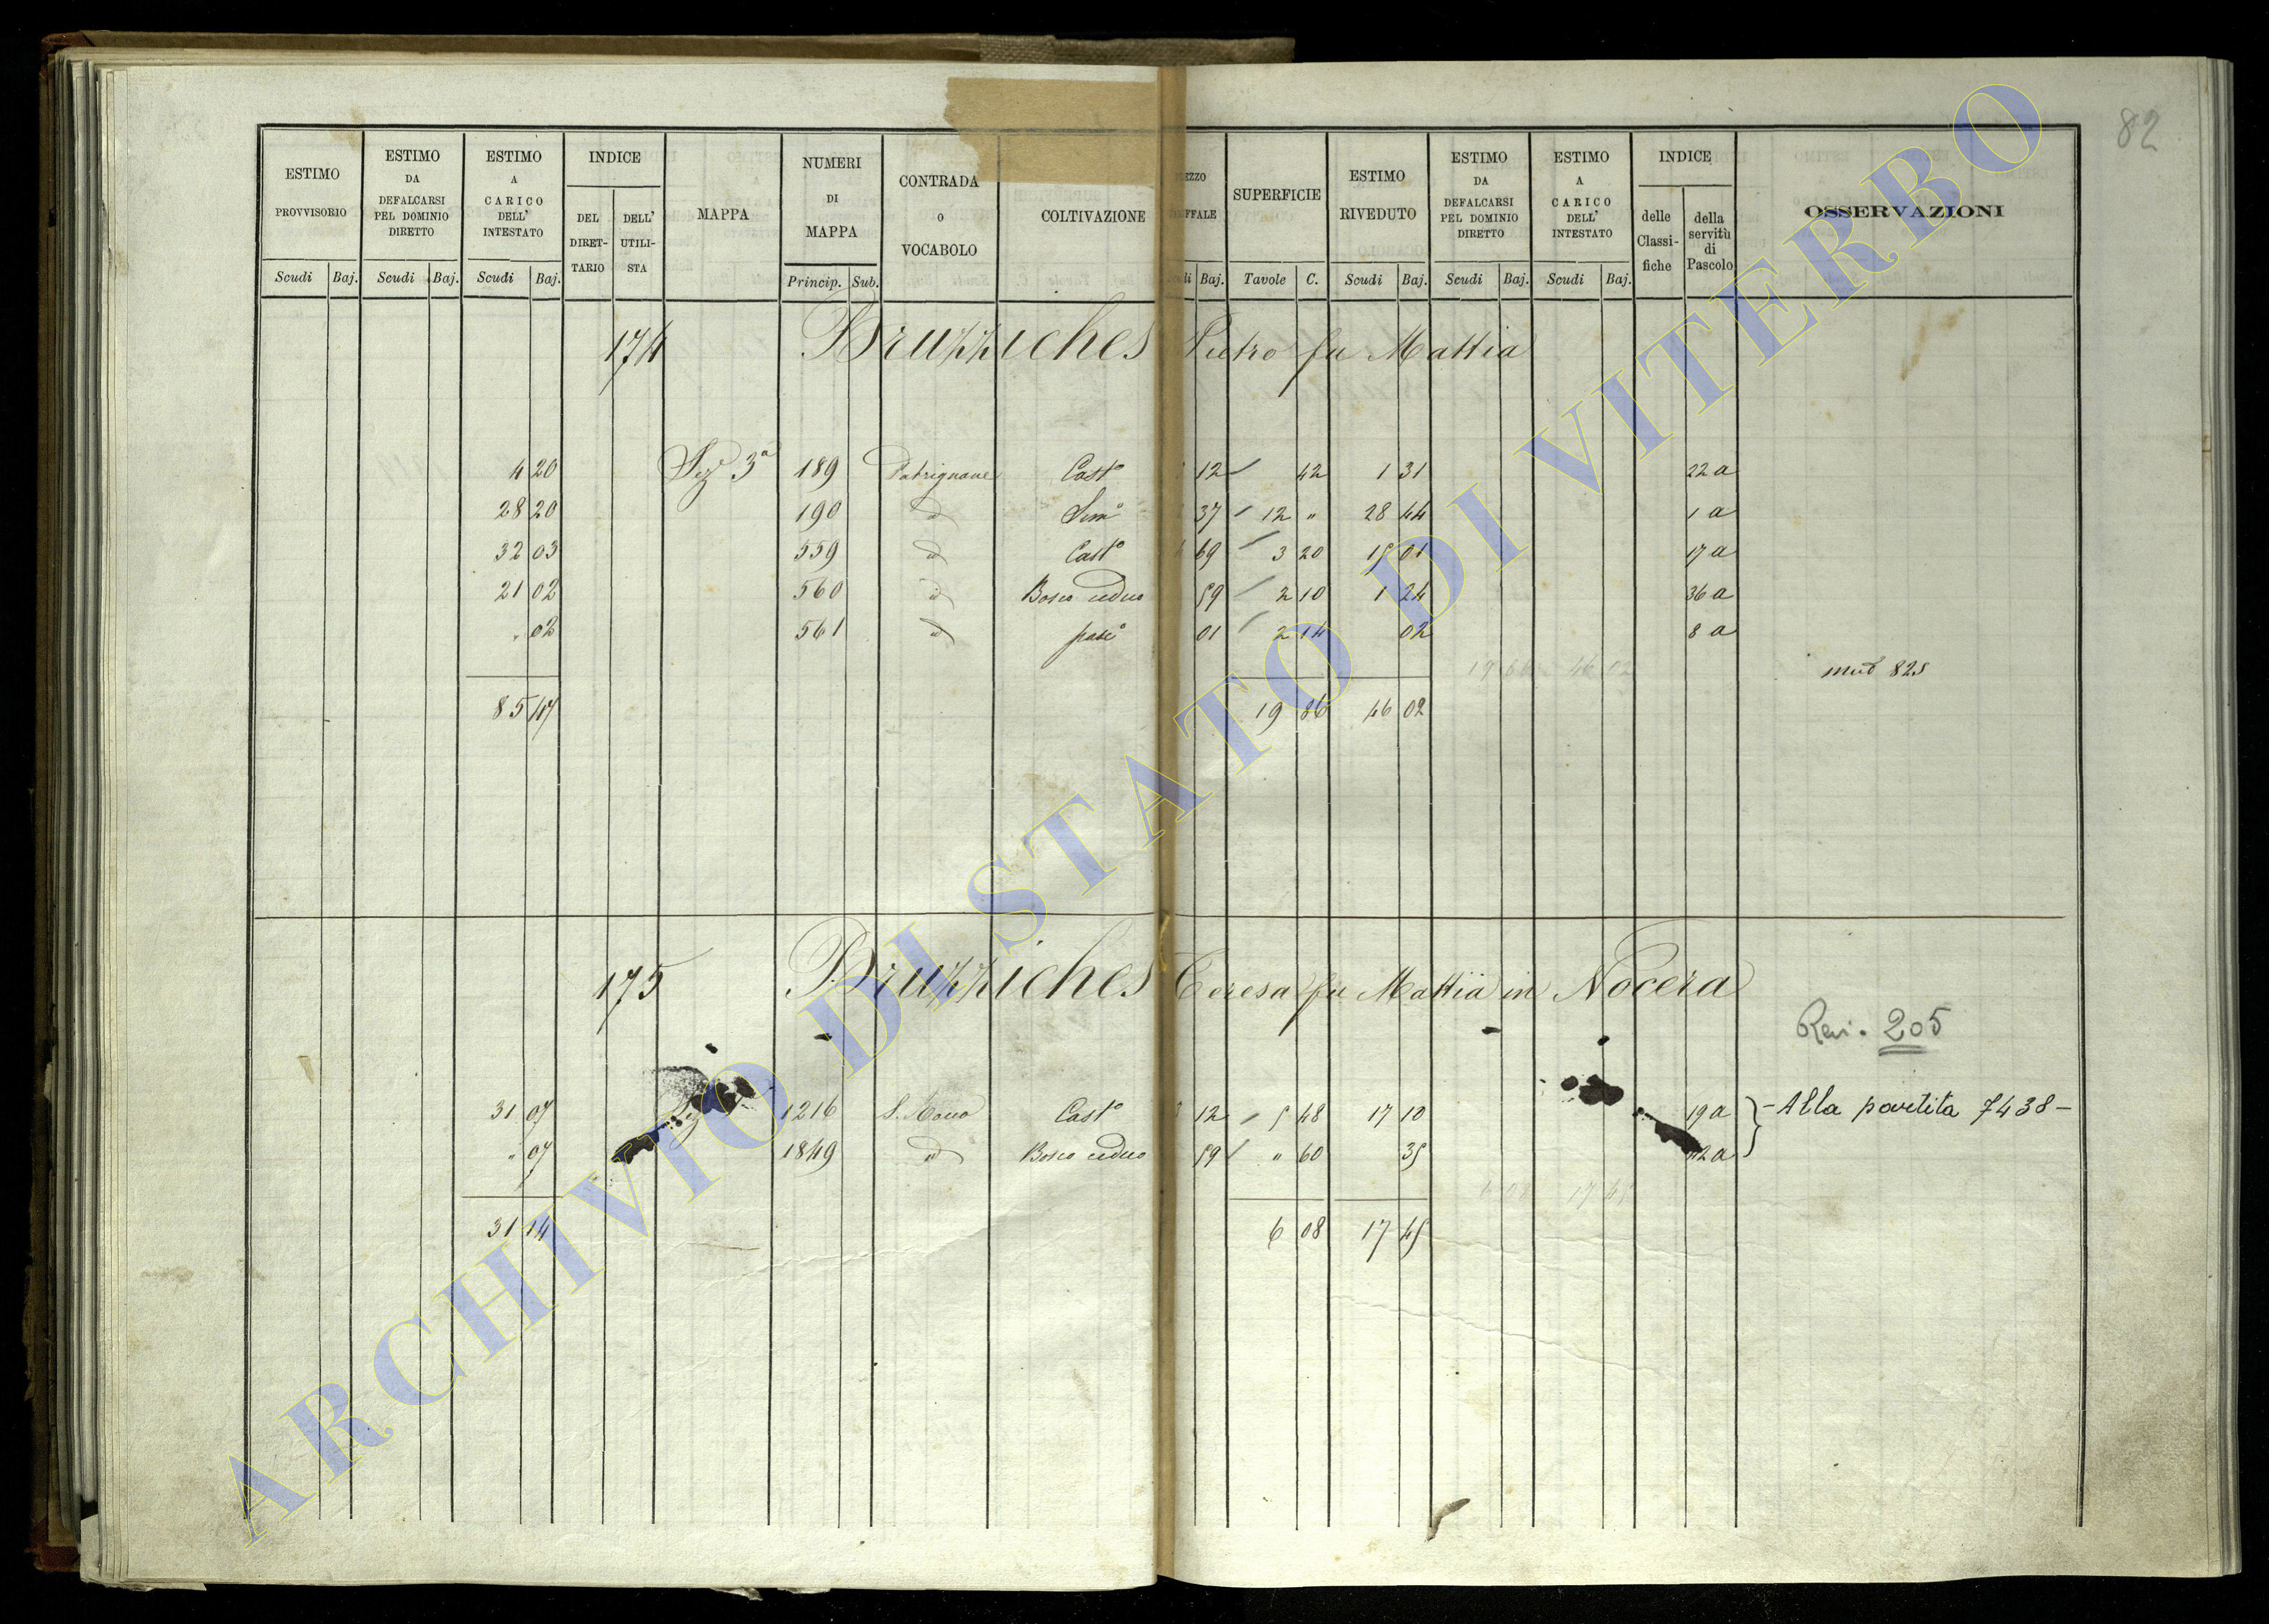 82
ESTIMO PROVVISORIO Scudi Baj.
ESTIMO DA DEFALCARSI PEL DOMINIO DIRETTO Scudi Baj.
ESTIMO A CARICO DELL' INTESTATO Scudi Baj.
INDICE DEL DIRETTARIO DELL' UTILISTA
MAPPA
NUMERI DI MAPPA Princip. Sub.
CONTRADA O VOCABOLO
COLTIVAZIONE
Baj.
SUPERFICIE Tavole C.
ESTIMO RIVEDUTO Scudi Baj.
ESTIMO DA DEFALCARSI PEL DOMINIO DIRETTO Scudi Baj.
ESTIMO A CARICO DELL' INTESTATO Scudi Baj.
INDICE delle Classifiche della servitù di Pascolo
OSSERVAZIONI
174 Bruzziches Pietro fu Mattia
4 20 Sez 3a 189 Patrignane Casto 12 42 1 31 22 a
28 20 190 id Semo 37 12 " 28 44 1 a
32 03 559 id Casto 69 3 20 15 01 17 a
21 02 560 id Bosco ceduo 59 2 10 1 24 36 a
" 02 561 id pasco 01 2 14 02 8 a
19 86 46 02 mut 825
85 47 19 86 46 02
175 Bruzziches Teresa fu Mattia in Nocera
Rev. 205
31 07 1216 Casto 12 5 48 17 10 19 a - Alla partita 7438 -
" 07 1849 id Bosco ceduo 59 " 60 35 42 a
6 08 17 45
31 14 6 08 17 45
ARCHIVIO DI STATO DI VITERBO